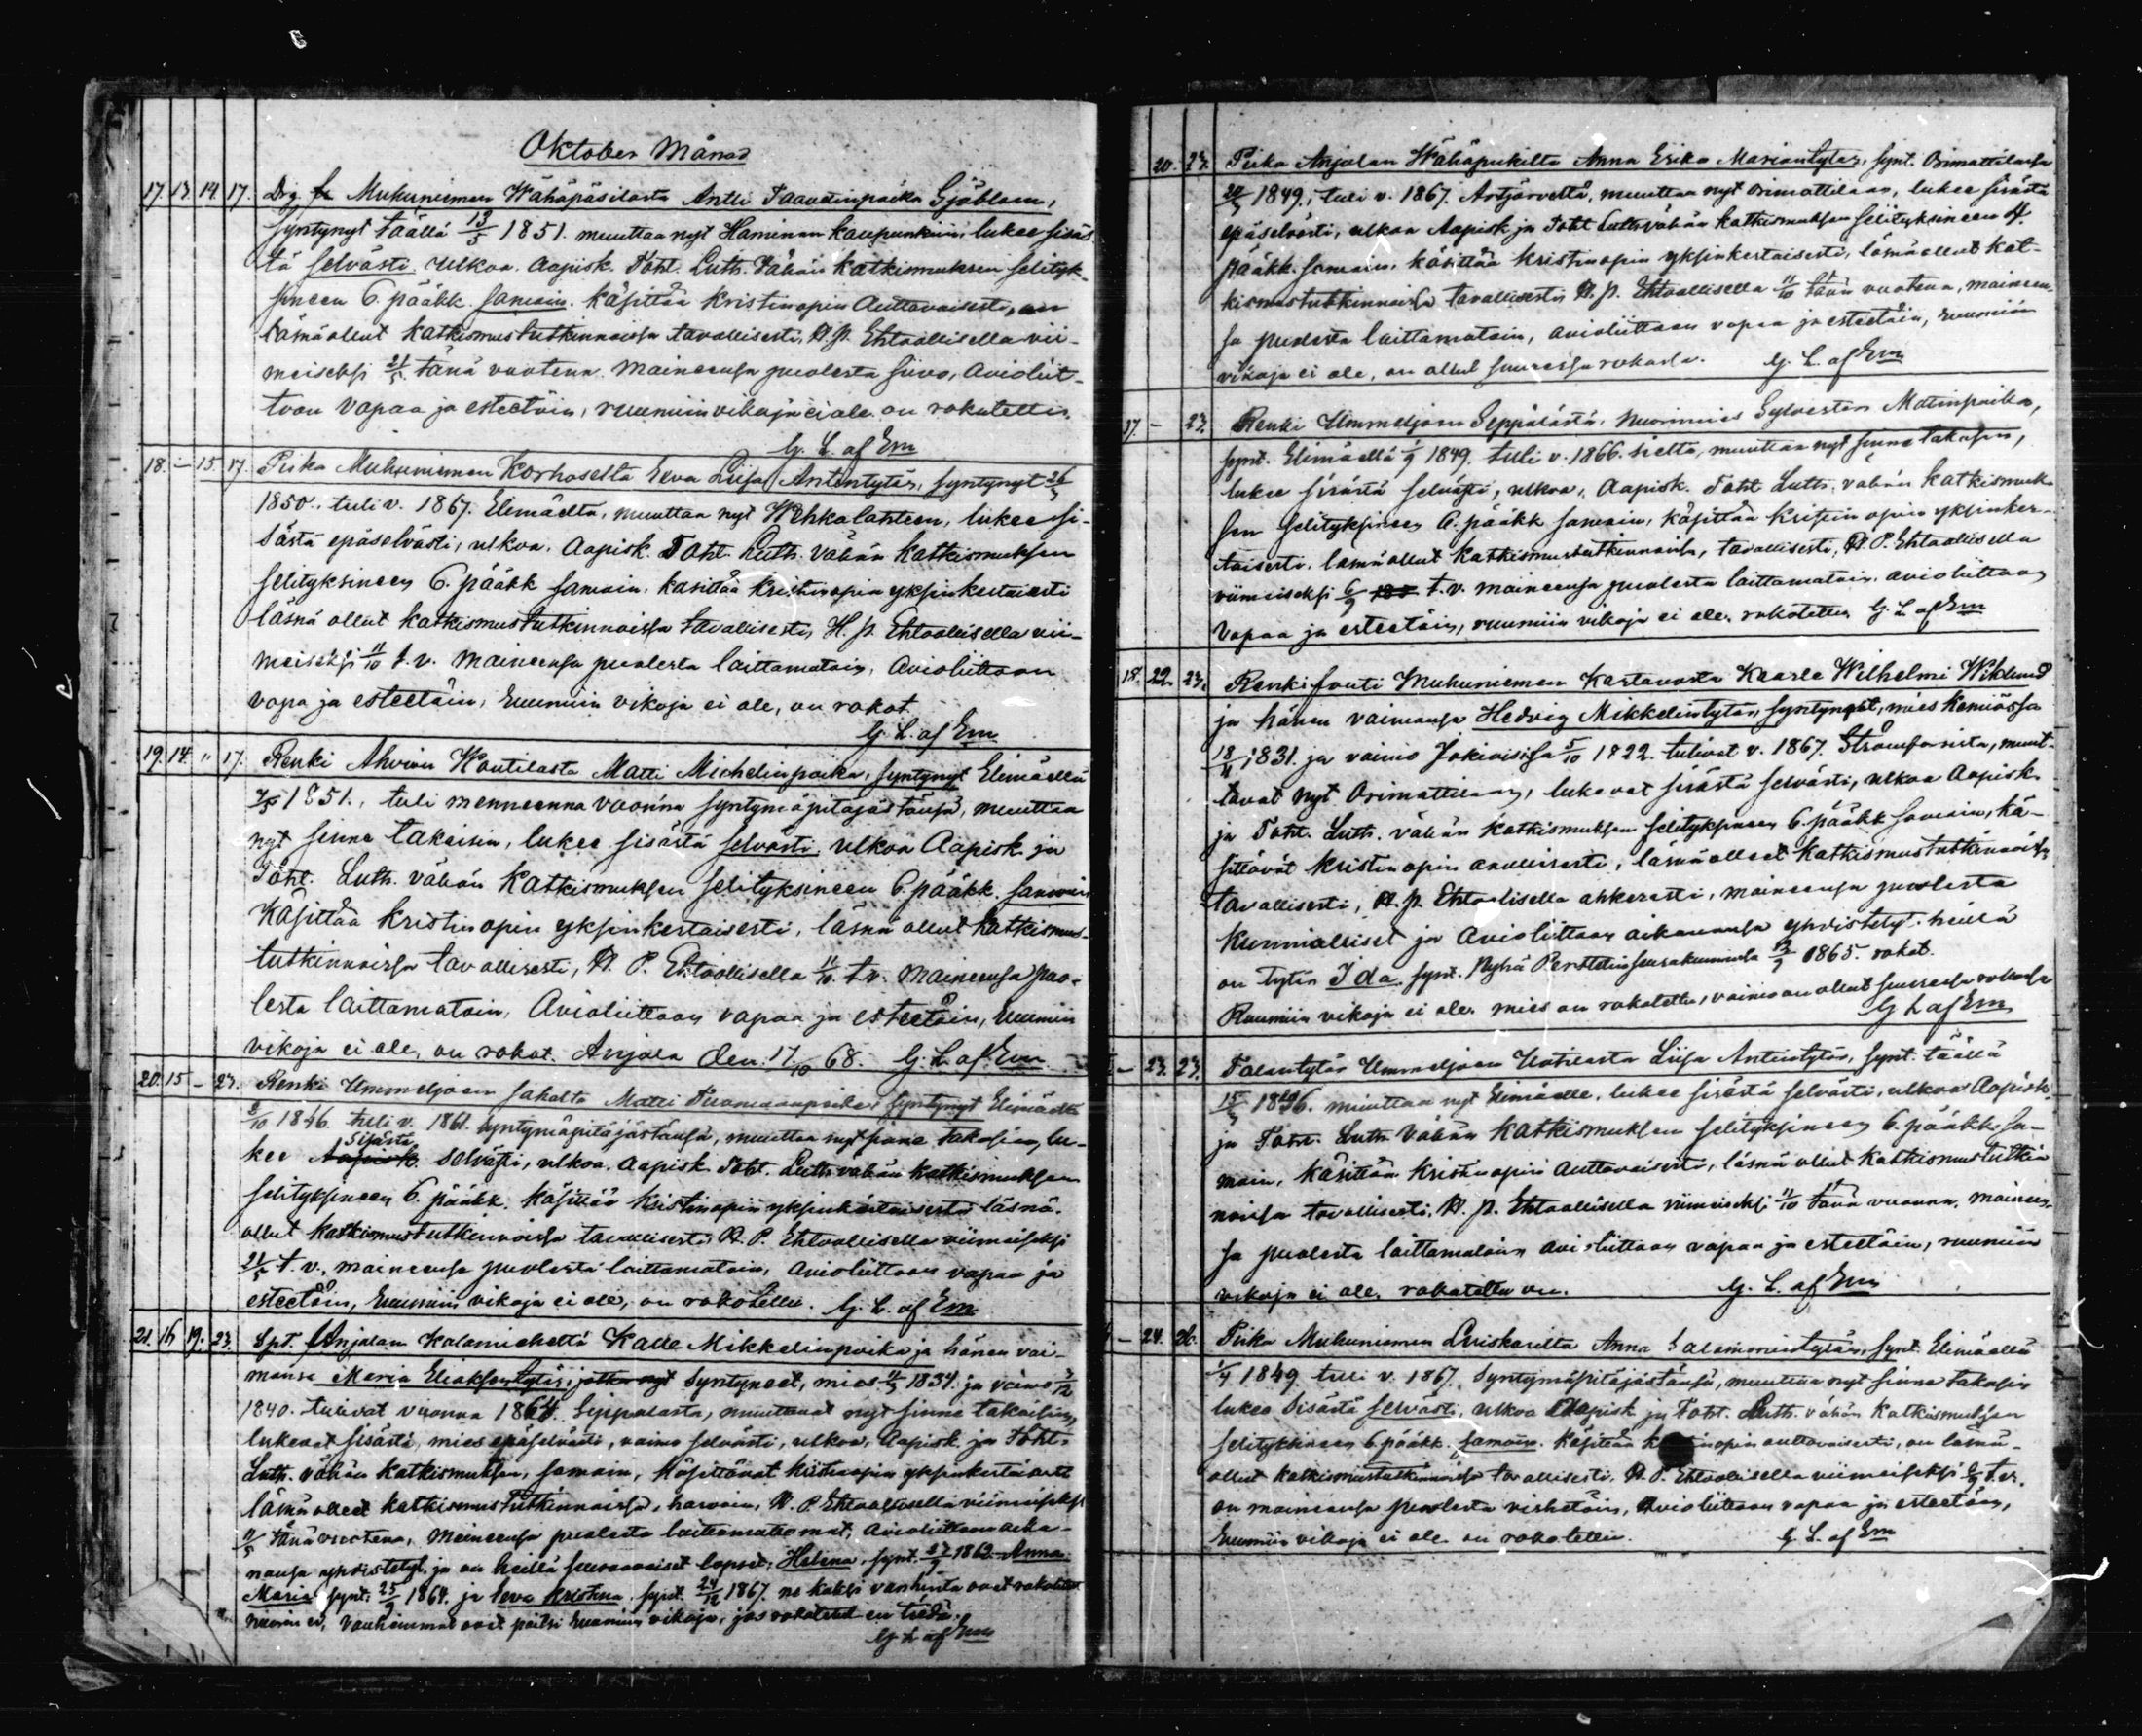 Oktober Månad
17. 13. 14. 17. Drg. fr. Muhuniemen Wähäpäsilasta Antti Taavetinpoika Sjöblom,
syntynyt täällä 13/5 1851. muuttaa nyt Haminan kaupunkiin, lukee sisäs
tä selvästi. ulkoa. Aapisk. Toht. Luth. Vähän katkismuksen selityk-
sineen 6. pääkk. samoin. käsittää kristinopin Auttavaisesti, on
läsnäollut katkismustutkinnoissa tavallisesti, H. P. Ehtoollisella vii-
meiseksi 21/5 tänä vuotena. Maineensa puolesta siivo, Avioliit-
toon vapaa ja esteetöin, ruumiin vikoja ei ole. on rokotettu.
G. L. af Em
18. – 15. 17. Piika Muhuniemen Korhoselta Eeva Liisa Antintytär, syntynyt 26/5
1850. tuli v. 1867. Elimäelta, muuttaa nyt Wehkalahteen, lukee si-
sästä epäselvästi, ulkoa. Aapisk. Toht. Luth. Vähän katkismuksen
selityksineen 6. pääkk samoin. käsittää kristinopin yksinkertaisesti
läsnä ollut katkismustutkinnoissa tavallisesti, H. p. Ehtoollisella vii-
meiseksi 11/10 t. v. Maineensa puolesta laittamatoin, Avioliittoon
vapa ja esteetöin, ruumiin vikoja ei ole, on rokot.
G. L. af Em
19. 14. " 17. Renki Ahvion Koutilasta Matti Michelinpoika, syntynyt Elimäellä
7/5 1851., tuli menneenna vuonna syntymäpitäjästänsä, muuttaa
nyt sinne takaisin, lukee sisästä selvästi, ulkoa Aapisk. ja
Toht. Luth. vähän katkismuksen selityksineen 6. pääkk. samoin
käsittää kristinopin yksinkertaisesti, läsnä ollut katkismus-
tutkinnoissa tavallisesti, H. P. Ehtoollisella 11/10 t. v. Maineensa puo-
lesta laittamatoin, Avioliittoon vapaa ja esteetöin, ruumiin
vikoja ei ole, on rokot. Anjala den 17/10 68. G. L. af Em
20. 15 – 23. Renki Ummeljoen sahalta Matti Tuomaanpoika syntynyt Elimäellä
2/10 1846. tuli v. 1861. syntymäpitäjästänsä, muuttaa nyt sinne takasin, lu-
sisästä
kee Aapisk selvästi, ulkoa. Aapisk. Toht. Luth. vähän katkismuksen
selityksineen 6. pääkk. käsittää kristinopin yksinkertaisesti läsnä.
ollut katkismustutkinnoissa tavallisesti, H. P. Ehtoollisella viimeiseksi
21/5 t. v., maineensa puolesta laittamatoin, Avioliittoon vapaa ja
esteetöin, ruumiin vikoja ei ole, on rokotettu. G. L. af Em
21. 16 19. 23. Spt. Anjalan Kalamiehettä Kalle Mikkelinpoika ja hänen vai-
monsa Maria Eliaksentytär, jotka nyt syntyneet, mies 4/5 1834. ja vaimo 3/12
1840. tulivat vuonna 1864. Sippolasta, muuttavat nyt sinne takaisin,
lukevat sisästä, mies epäselvästi, vaimo selvästi, ulkoa, Aapisk. ja Toht.
Luth. vähän katkismuksen, samoin, käsittävät kristinopin yksinkertaisesti
läsnä olleet katkismustutkinnoissa, harvoin, H. P. Ehtoollisella viimeiseksi
11/5 tänä vuotena, Maineensa puolesta laittamattomat, Avioliittoon aika-
nansa yhdistetyt, ja on heillä seuraavaiset lapset, Helena, synt. 27/9 1862. Anna
Maria synt. 25/2 1864. ja Eeva Kristina, synt. 24/12 1867. ne kaksi vanhinta ovat rokotetut
nuorin ei, vanhemmat ovat paitsi ruumiin vikoja, jos rokotetut en tiedä.
G. L. af Em
20. 23. Piika Anjalan Wähäpukilta Anna Erika Mariantytär, synt. Orimattilassa
20/5 1849., tuli v. 1867. Artjärveltä, muuttaa nyt Orimattilaan, lukee sisästä
epäselvästi, ulkoa Aapisk ja Toht Luth. vähän katkismuksen selityksineen 4.
pääkk. samoin, käsittää kristinopin yksinkertaisesti, läsnäollut kat-
kismustutkinnoissa tavallisesti H. p. Ehtoollisella 11/10 tänä vuotena, maineen-
sa puolesta laittamatoin, avioliittoon vapaa ja esteetöin, ruumiin
vikoja ei ole, on ollut suuressa rokossa. G. L. af Em
17. – 23. Renki Ummeljoen Seppälästä, Nuorimies Sylvester Matinpoika,
synt. Elimäellä 1/9 1849. tuli v. 1866. sieltä, muuttaa nyt sinne takasin,
lukee sisästä selvästi, ulkoa, Aapisk. Toht Luth. vähän katkismuk-
sen selityksineen 6. pääkk samoin, käsittää kristin opin yksinker-
taisesti. läsnäollut katkismustutkinnoissa, tavallisesti, H. P. Ehtoollisella
viimeiseksi 6/9 t. v. maineensa puolesta laittamatoin, avioliittoon
vapaa ja esteetöin, ruumiin vikoja ei ole, rokotettu. G. L. af Em
18. 22 23. Renki fouti Muhuniemen Kartanosta Kaarle Wilhelmi Wiklund
ja hänen vaimonsa Hedvig Mikkelintytär, syntyneet, mies Kemiössä
18/11 1831. ja vaimo Jokioisissa 5/10 1822. tulivat v. 1867. Strömforsista, muut-
tavat nyt Orimattilaan, lukevat sisästä selvästi, ulkoa Aapisk.
ja Toht. Luth. vähän katkismuksen selityksineen 6. pääkk samoin, kä-
sittävät kristinopin avullisesti, läsnäolleet katkismustutkinnoissa
tavallisesti, H. p. Ehtoollisella ahkerasti, maineensa puolesta
kunnialliset ja Avioliittoon aikanansa yhdistetyt. heillä
on tytär Ida, synt. Pyhä Perttelin seurakunnassa 12/7 1865. rokot.
Ruumiin vikoja ei ole. mies on rokotettu, vaimo on ollut suuressa rokossa
G L af Em
– 23. 23. Talontytär Ummeljoen Uotilasta Liisa Antintytär, synt. täällä
15/5 1846. muuttaa nyt Elimäelle, lukee sisästä selvästi, ulkoa Aapisk.
ja Toht. Luth. Vähän Katkismuksen selityksineen 6. pääkk. sa-
moin, käsittää kristinopin Auttavaisesti, läsnä ollut katkismustutkin
noissa tavallisesti, H. p. Ehtoollisella viimeiseksi 11/10 tänä vuonna, maineen-
sa puolesta laittamatoin avioliittoon vapaa ja esteetöin, ruumiin
vikoja ei ole, rokotettu on. G. L. af Em
– 24. 26. Piika Muhuniemen Anna Salomonintytär, synt. Elimäellä
1/4 1849. tuli v. 1867. Syntymäpitäjästänsä, muuttaa nyt sinne takasin
lukee sisästä selvästi, ulkoa Aapisk ja Toht. Luth. vähän katkismuksen
selityksineen 6. pääkk. samoin. käsittää k inopin auttavaisesti, on läsnä-
ollut katkismustutkinnoissa tavallisesti, H. P. Ehtoollisella viimeiseksi 6/9 t. v.
on maineensa puolesta virhetöin, Avioliittoon vapaa ja esteetöin,
ruumiin vikoja ei ole on rokotettu. G. L. af Em